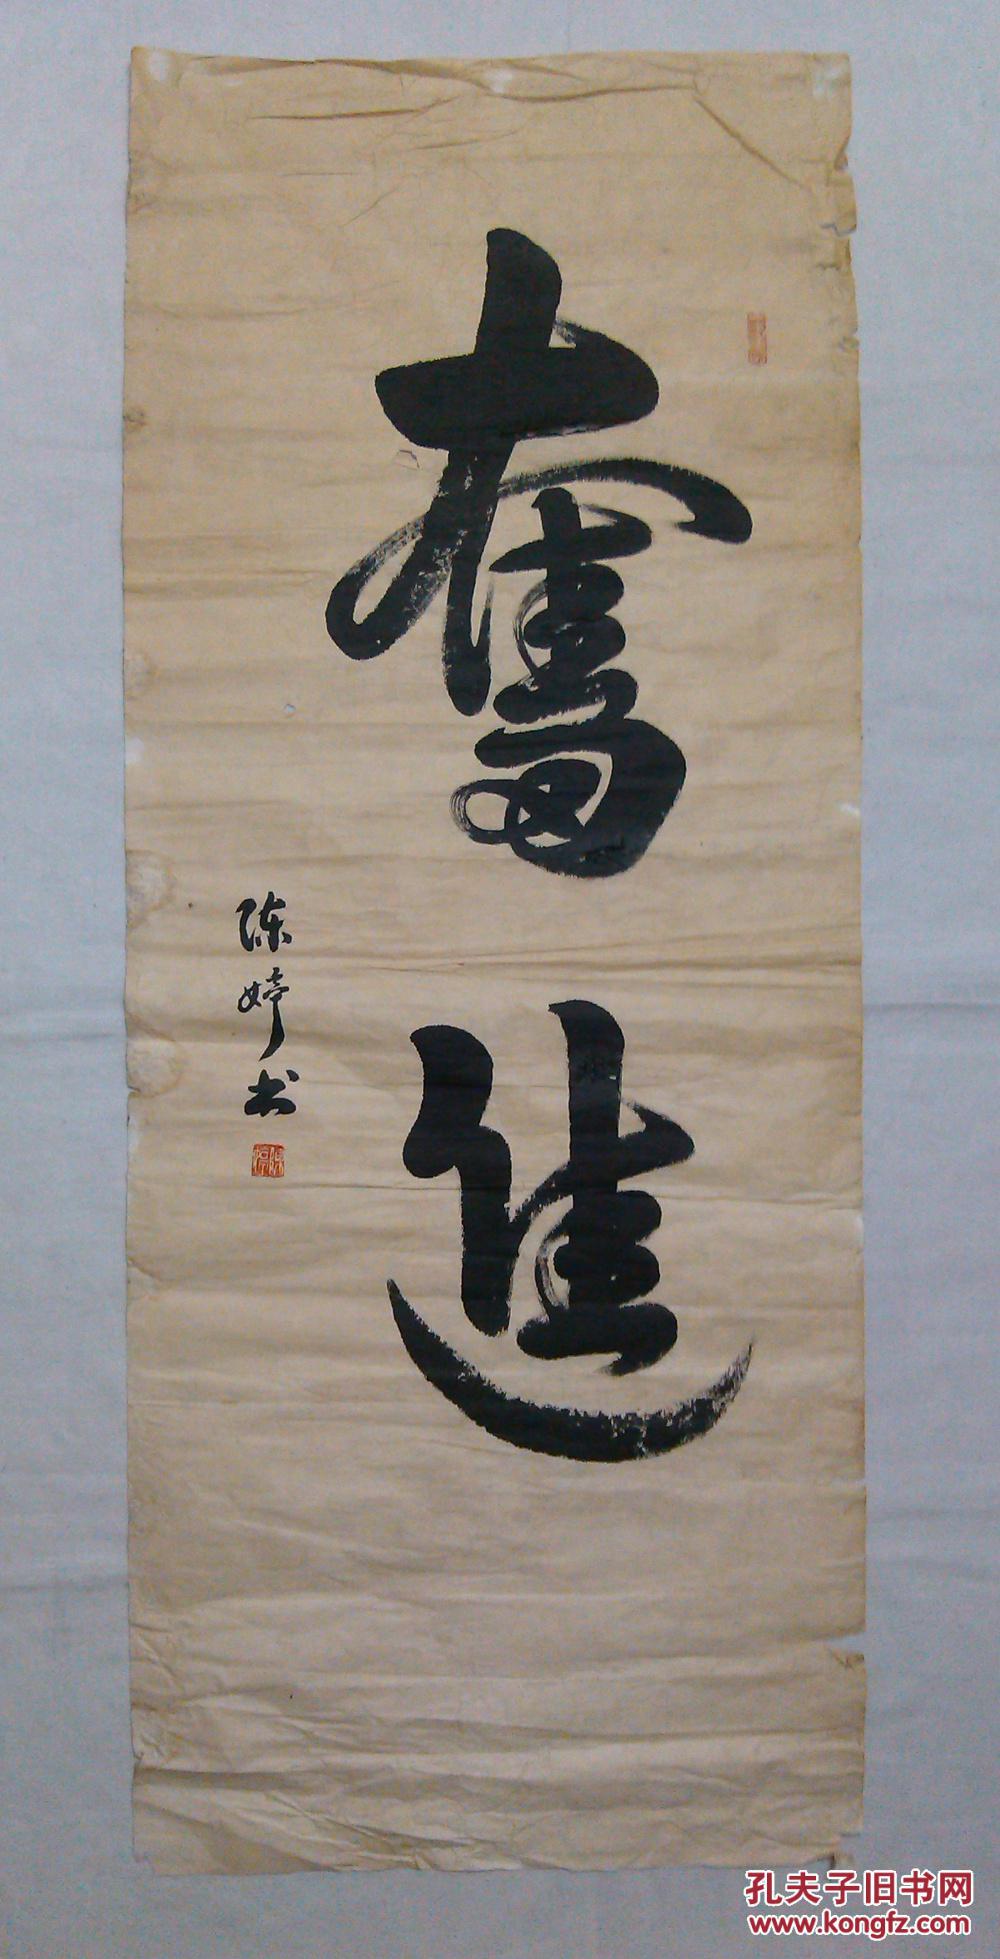 奮進
陈婷书
陈婷
孔夫子旧书网
www.kongfz.com